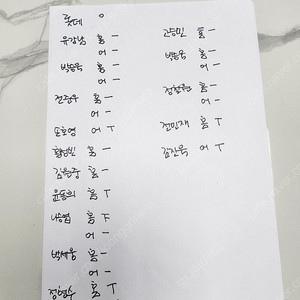 롯데 0
유강남 홈 -
어 -
박승욱 홈 -
어 -
전준우 홈 -
어 -
손호영 홈 -
어 T
황성빈 홈 -
김원중 홈 -
윤동희 홈 T
나승엽 홈 T
어 -
박세웅 홈 -
어 -
정현수 홈 T
어 -
고승민 홈 -
박승웅 홈 -
어 -
정철원 홈 -
어 -
전민재 홈 T
김진욱 어 T